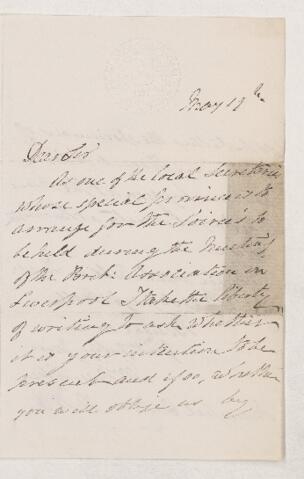 May 19th
Dear Sir
As one of the local Secretaries
whose special province is to
arrange for the Soirées to
be held during the Meeting
of the Brit: Association in
Liverpool I take the liberty
of writing to ask whether
it is your intention to be
present and if so, whether
you will oblige us by